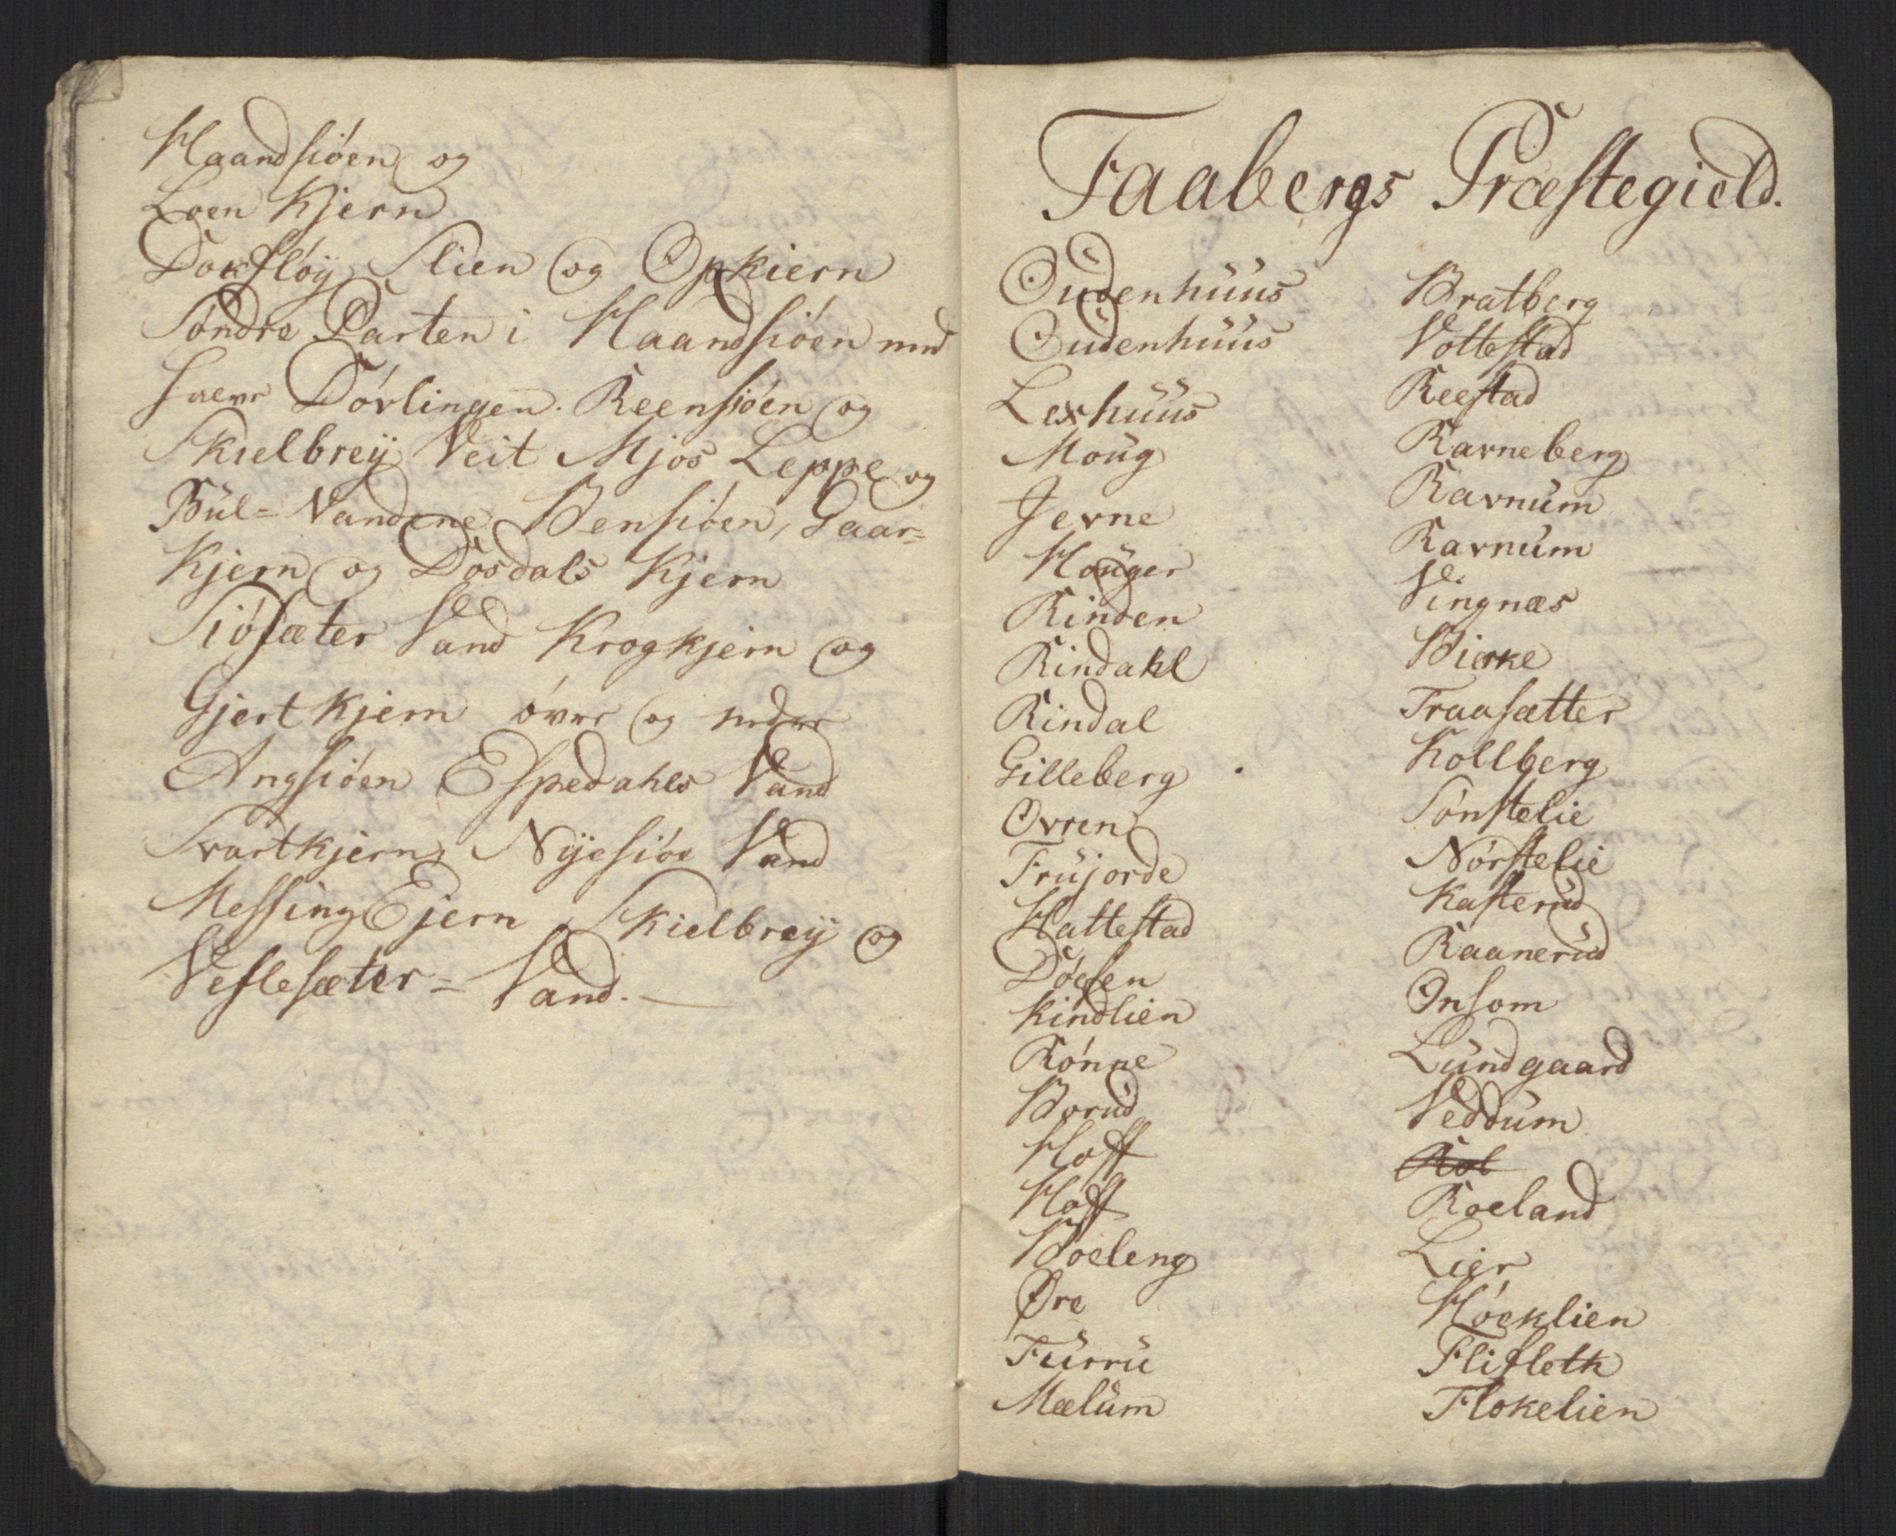 Haandsiöen og
Loen Kjern
Dokfløy, Slien og Opkiern
Söndre Parten i Haandsiöen med
halve Dövlingen. Reensiöen og
Skielbreÿ Veit Mjos Leppe og
Bül= Vandene, Bensiöen, Gaar=
Kjern og Dösdals Kjern
Siösæter Vand Krogkjern og
Gjertkjern övre og nedre
Angsiöen Espedahls Vand
Svartkjern, Nÿesiöe Vand
Messing Ejern, Skielbreÿ og
Veslesæter= Vand.
Faabergs Præstegield.
Oudenhüüs
Oudenhüüs
Lexhüüs
Moüg
Jevne
Hoüger
Rinden
Rindahl
Rindal
Gilleberg
Ovren
Früjorde
Hattestad
Döesen
Kindlien
Rönne
Borüd
Hoff
Hoff
Boeleng
Øre
Fürrü
Mælüm
Bratberg
Vollestad
Reestad
Ravneberg
Ravnüm
Ravnüm
Vingnæs
Birke
Traasætter
Kollberg
Sönstelie
Nörstelie
Kasterüd
Raanerüd
Onsom
Lündgaard
Veddüm
Rol
Roeland
Lier
Höeklien
Flifleth
Flokelien